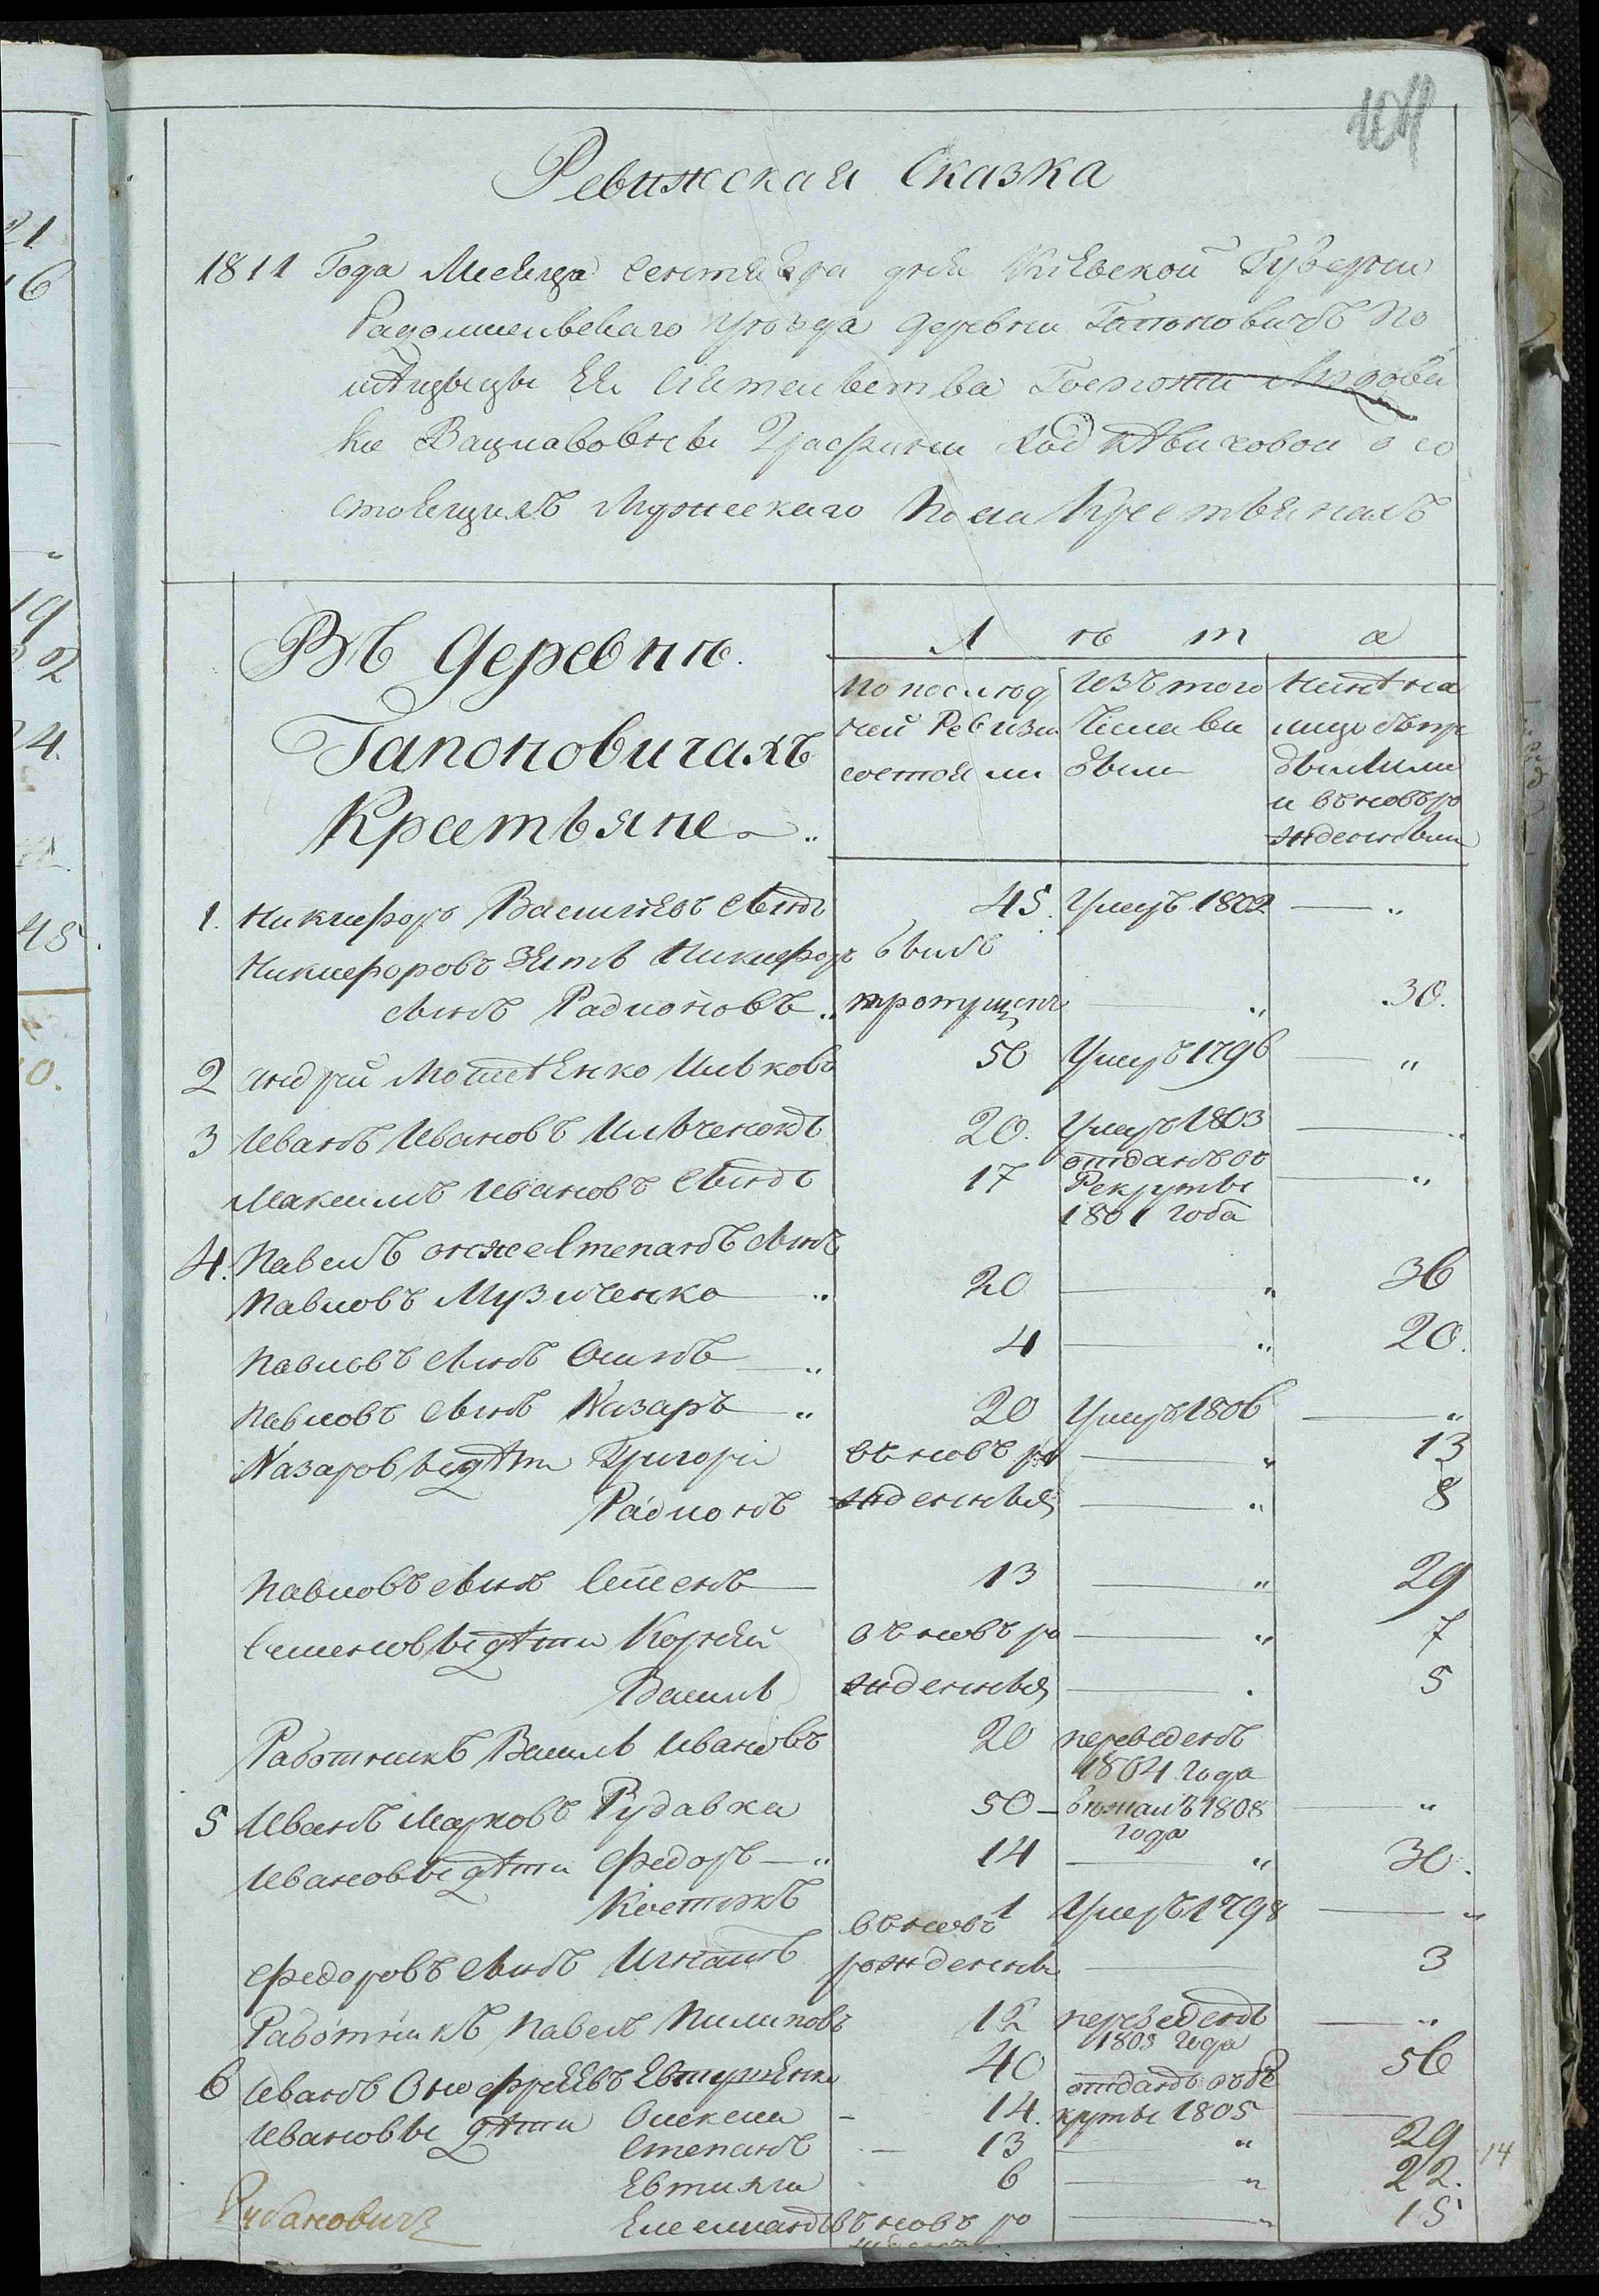 104
Ревижская Сказка
1811 Года Месеица Сентебра дня Киевской Губернии
Радомысльскаго уезда деревни Гапоновичъ По
мѣщыцы Ея Сиятельства Госпожи Людови
ки Вацлавовны Графини Ходкѣвичовой о со
стоящихъ Мужескаго пола Крестьянахъ
Въ деревни
Гапоновичахъ
Крестьяне
Лѣта
По послѣд
ней Ревизи
состояли
Изъ того
Числа вы
были
Нинѣ на
лицо съпр
былыми
и въновъ ро
жденными
1. Никифоръ Васильевъ Сынъ 45. Умеръ 1802 — „
Никифоровъ Зять Никифоръ былъ
Сынъ Радионовъ „ пропущенъ — „ 30.
2 Андрей Мошѣнко Ильковъ 50 Умеръ 1796 — „
3 Иванъ Ивановъ Ильченокъ 20. Умеръ 1803 — „
Максимъ Ивановъ Сынъ 17 отданъ въ Рекруты 1801 года — „
4. Павелъ онже Степанъ Сынъ
Павловъ Музиченко — „ 20 — „ 36
Павловъ Сынъ Осипъ — „ 4 — „ 20.
Павловъ Сынъ Назаръ — „ 20 Умеръ 1806 — „
Назаровы дѣти Григори вновъ ро — „ 13
Радионъ жденныя — „ 8
Павловъ Сынъ Семенъ — 13 — „ 29
Семеновы дѣти Корней вновъ ро — „ 7
Василь жденныя — . 5
Работникъ Василь Ивановъ 20 переведенъ
1804 года
5 Иванъ Марковъ Рудавка 50 — бѣжалъ 1808 — „
года
Ивановы дѣти Федоръ — „ 14 — „ 30.
Костюкъ 1 Умеръ 1798 — „
Федоровъ Сынъ Игнатъ вновъ рожденны — 3
Работникъ Павелъ Пилиповъ 12 переведенъ — „
1803 года
6 Иванъ Оноффреевъ Евтушенко 40 56
Ивановы дѣти Олексей - 14. отданъ въ Ре
круты 1805 —
Степанъ — 13 — „ 29
14
Евтихи 6 — „ 22.
Емелианъ вновъ ро — „ 15